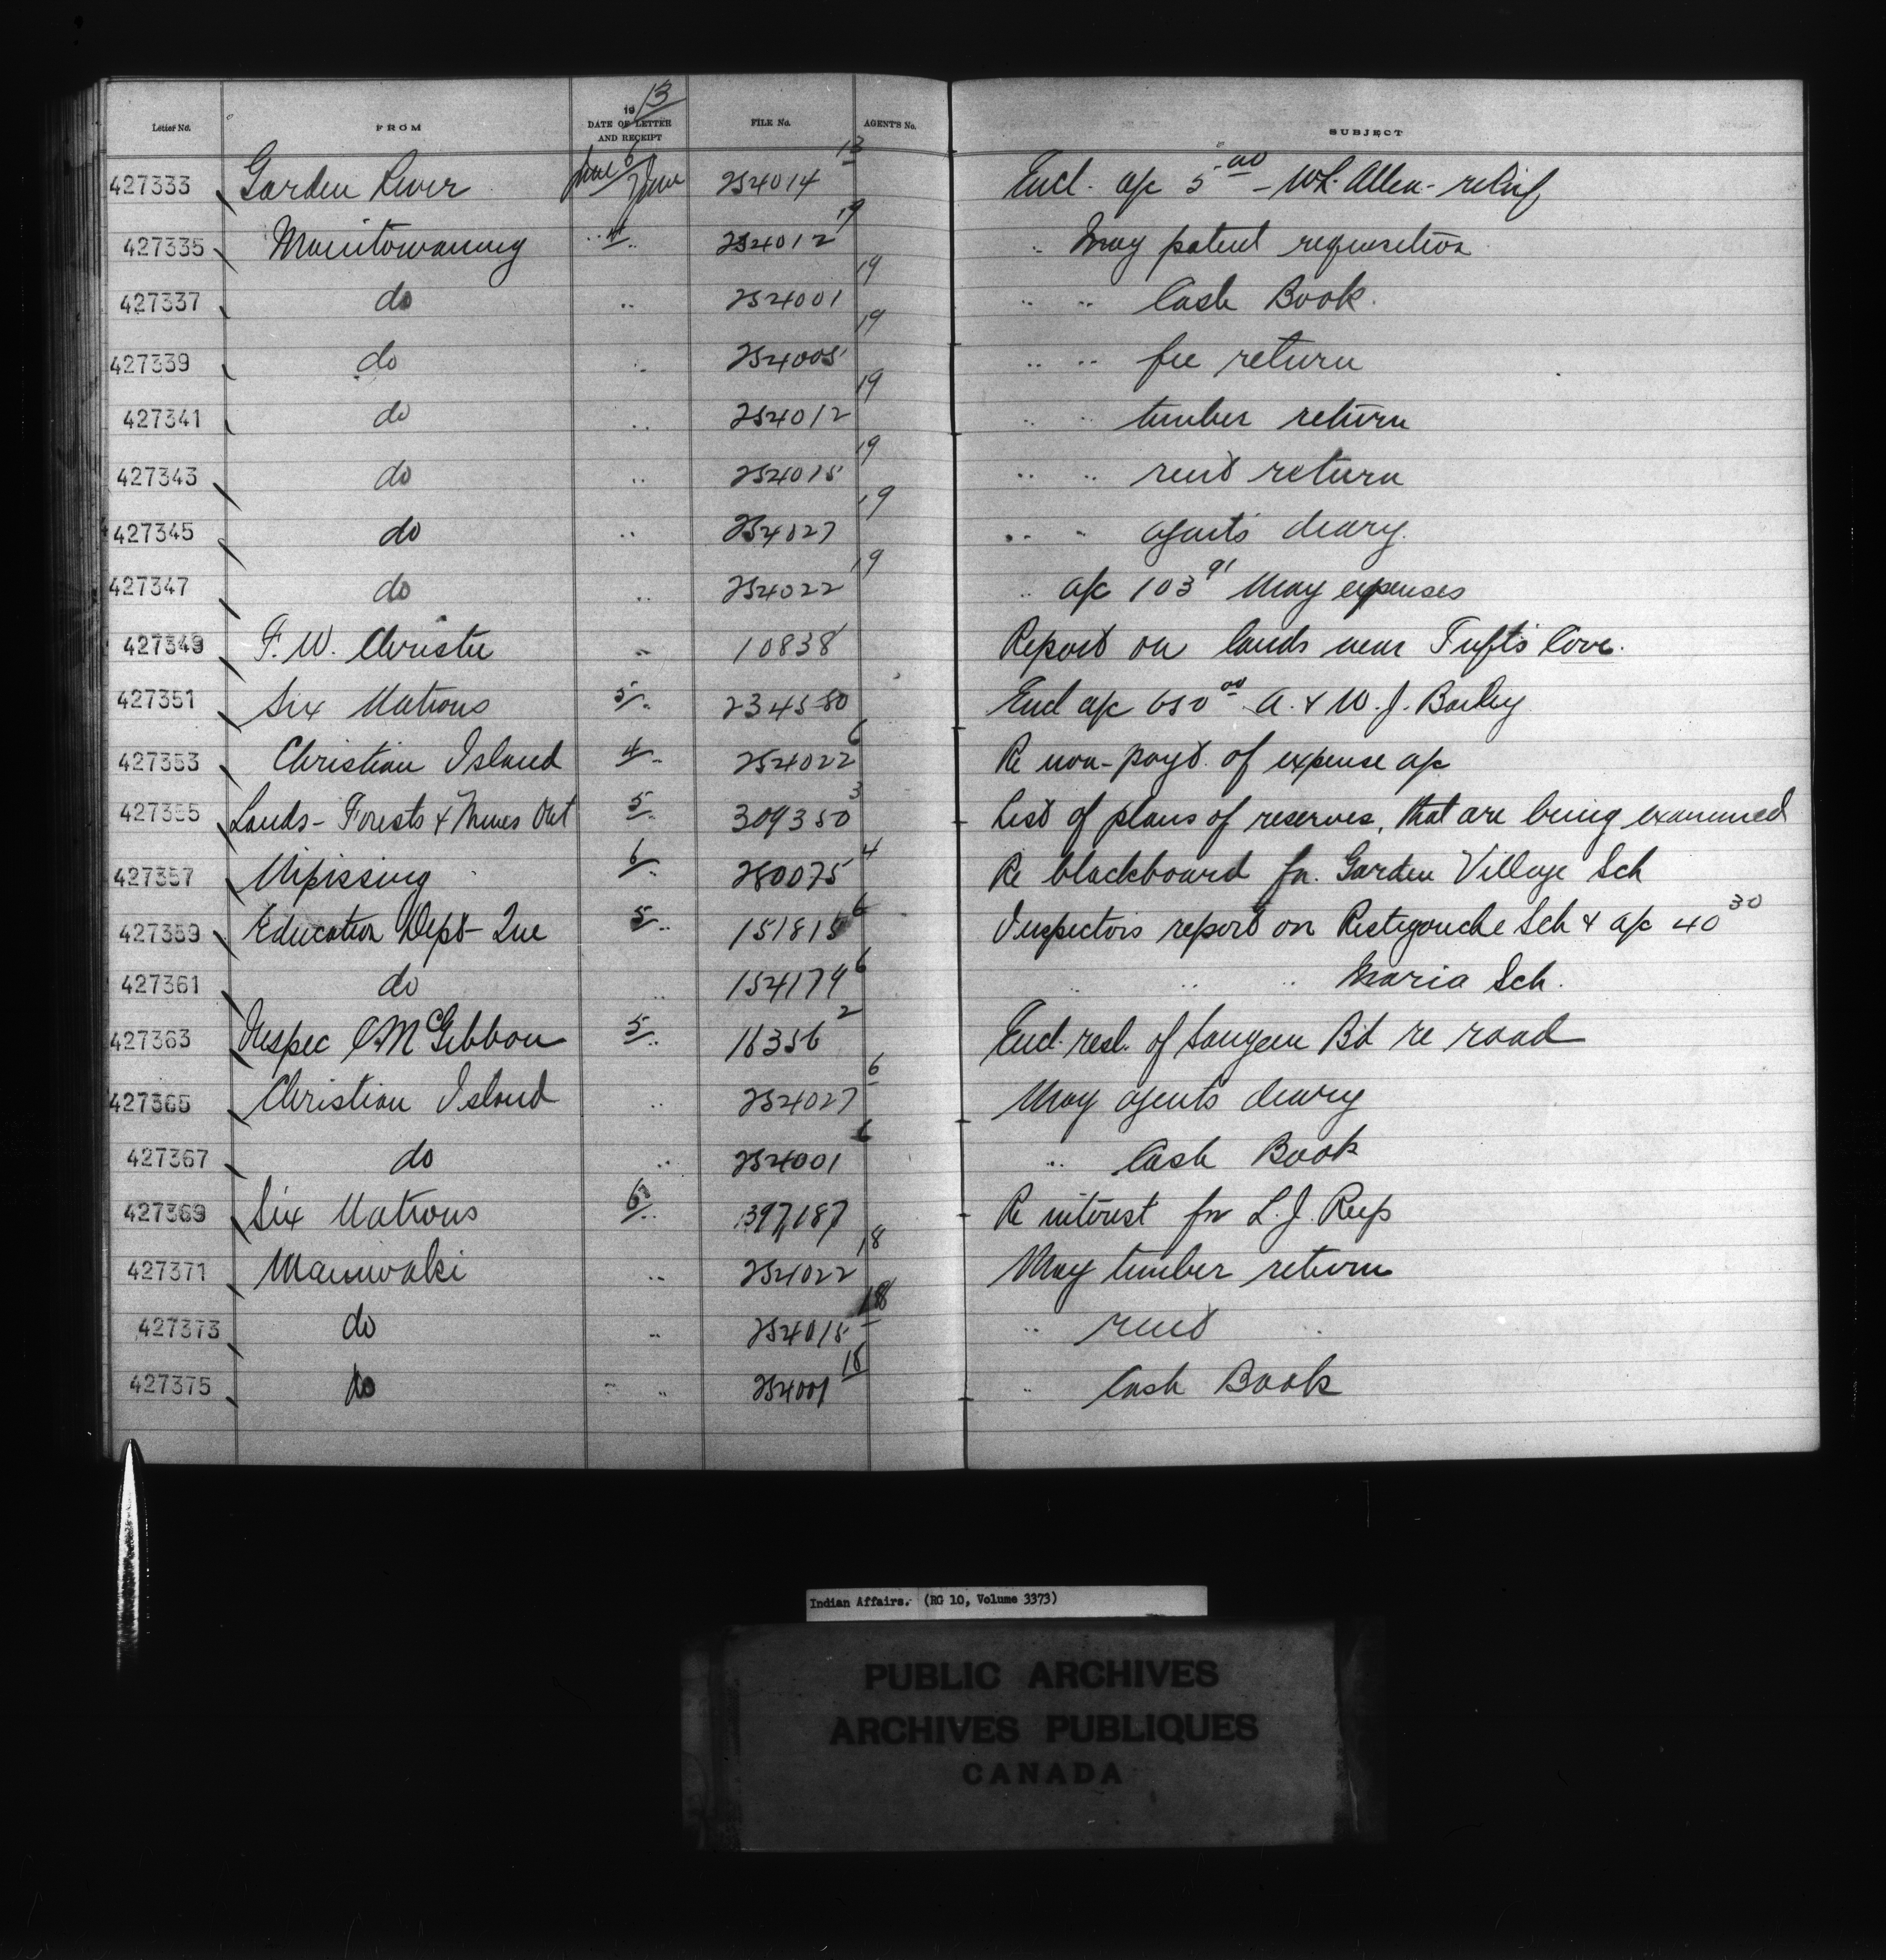 Letter No. FROM 1913 DATE OF LETTER AND RECEIPT FILE No. AGENT'S No. SUBJECT
427333 Garden River June 6 June 254014 13 Encl. a/c 5.00 - Wk. Allen - relief
427335 Manitowaning 4 " 254012 19 " May patent requisition
427337 do " 254001 19 " " Cash Book.
427339 do " 254005 19 " " fee return
427341 do " 254012 19 " " timber return
427343 do " 254015 19 " " rent return
427345 do " 254027 19 " " agents diary.
427347 do " 254022 19 " a/c 103 91 May expenses
427349 F. W. Christie " 10838 Report on lands near Tufts Cove.
427351 Six Nations 5 " 234580 Encl a/c 650 00 A. & W. J. Bailey
427353 Christian Island 4 " 254022 6 Re non-payt. of expense a/c
427355 Lands - Forests & Mines Ont 5 " 309350 3 List of plans of reserves, that are being examined
427357 Nipissing 6 " 280075 4 Re blackboard for Garden Village Sch
427359 Education Dept - Que 5 " 151815 6 Inspectors report on Restigouche Sch & a/c 40 30
427361 do " 154179 6 " " " Maria Sch.
427363 Inspec C McGibbon 5 " 16356 2 Encl. resl. of Saugeen Bd re road
427365 Christian Island " 254027 6 May agents diary
427367 do " 254001 6 " Cash Book
427369 Six Nations 6 " 397187 Re interest for L. J.
427371 Maniwaki " 254022 18 May timber return
427373 do " 254015 18 " rent
427375 do " " 254001 18 " Cash Book
Indian Affairs. (RG 10, Volume 3373)
PUBLIC ARCHIVES
ARCHIVES PUBLIQUES
CANADA